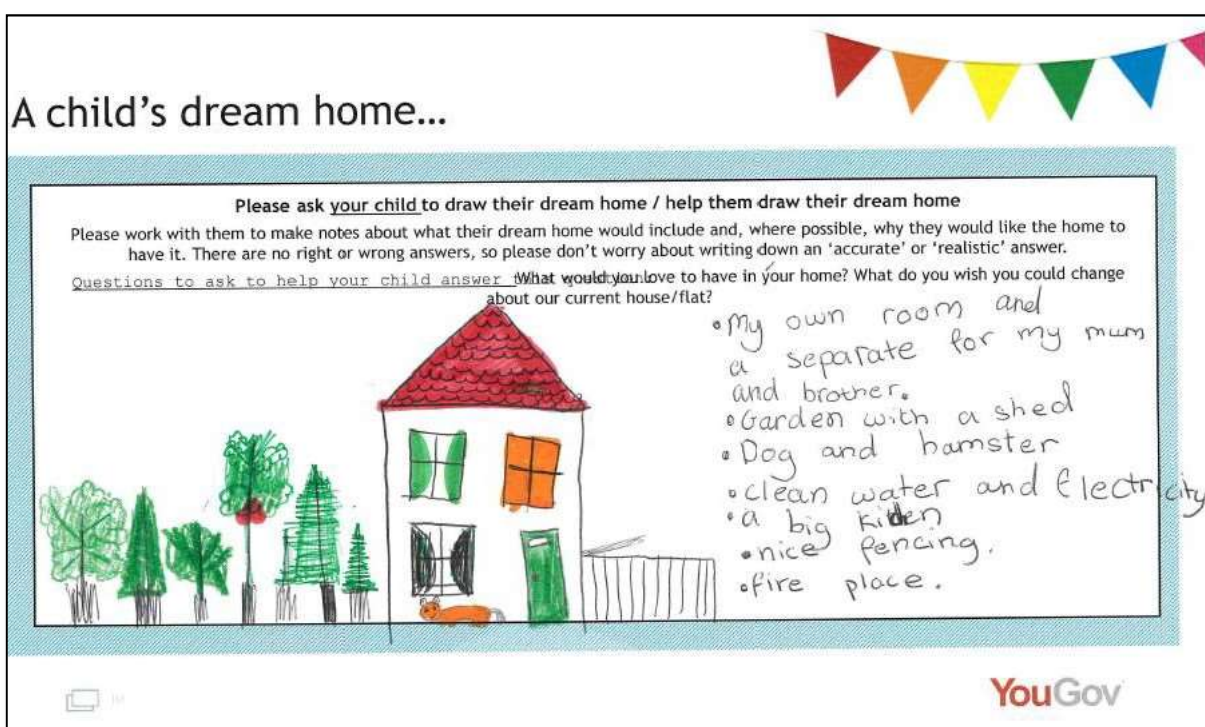 A child's dream home...
Please ask your child to draw their dream home / help them draw their dream home
Please work with them to make notes about what their dream home would include and, where possible, why they would like the home to
have it. There are no right or wrong answers, so please don't worry about writing down an 'accurate' or 'realistic' answer.
Questions to ask to help your child answer What would you love to have in your home? What do you wish you could change
about our current house/flat?
•My own room and
a separate for my mum
and brother.
•Garden with a shed
•Dog and hamster
•clean water and Electricity
•a big
•nice fencing.
•fire place.
YouGov